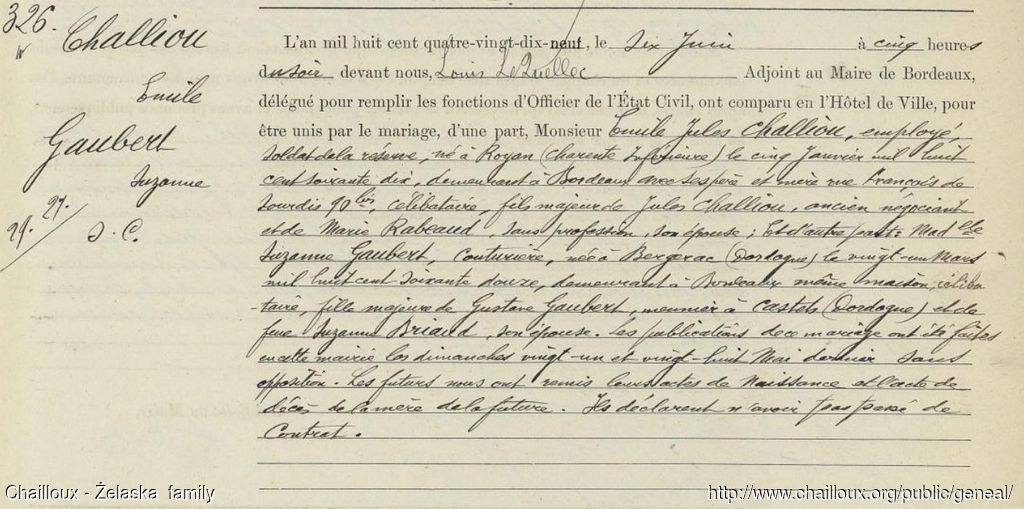 326.
Challiou
Emile
Gaubert
Suzanne
29. 27.
S. C.
L'an mil huit cent quatre-vingt-dix-neuf, le six Juin à cinq heures
du soir devant nous, Louis Le Quellec Adjoint au Maire de Bordeaux,
délégué pour remplir les fonctions d'Officier de l'État Civil, ont comparu en l'Hôtel de Ville, pour
être unis par le mariage, d'une part, Monsieur Emile Jules Challiou, employé,
soldat de la réserve, né à Royan (Charente Inférieure) le cinq Janvier mil huit
cent soixante dix, demeurant à Bordeaux avec ses père et mère rue François de
Sourdis 90 bis, célibataire, fils majeur de Jules Challiou, ancien négociant
et de Marie Rabeaud, sans profession, son épouse ; et d'autre part : Mad lle
Suzanne Gaubert, couturière, née à Bergerac (Dordogne) le vingt-un Mars
mil huit cent soixante douze, demeurant à Bordeaux même maison, céliba
taire, fille majeure de Gustave Gaubert, meunier à Castels (Dordogne) et de
feue Suzanne Briaud, son épouse. Les publications de ce mariage ont été faites
en cette mairie les dimanches vingt-un et vingt-huit Mai dernier sans
opposition. Les futurs nous ont remis leurs actes de Naissance et l'acte de
décès de la mère de la future. Ils déclarent n'avoir pas passé de
Contrat.
Chailloux - Żelaska family
http://www.chailloux.org/public/geneal/